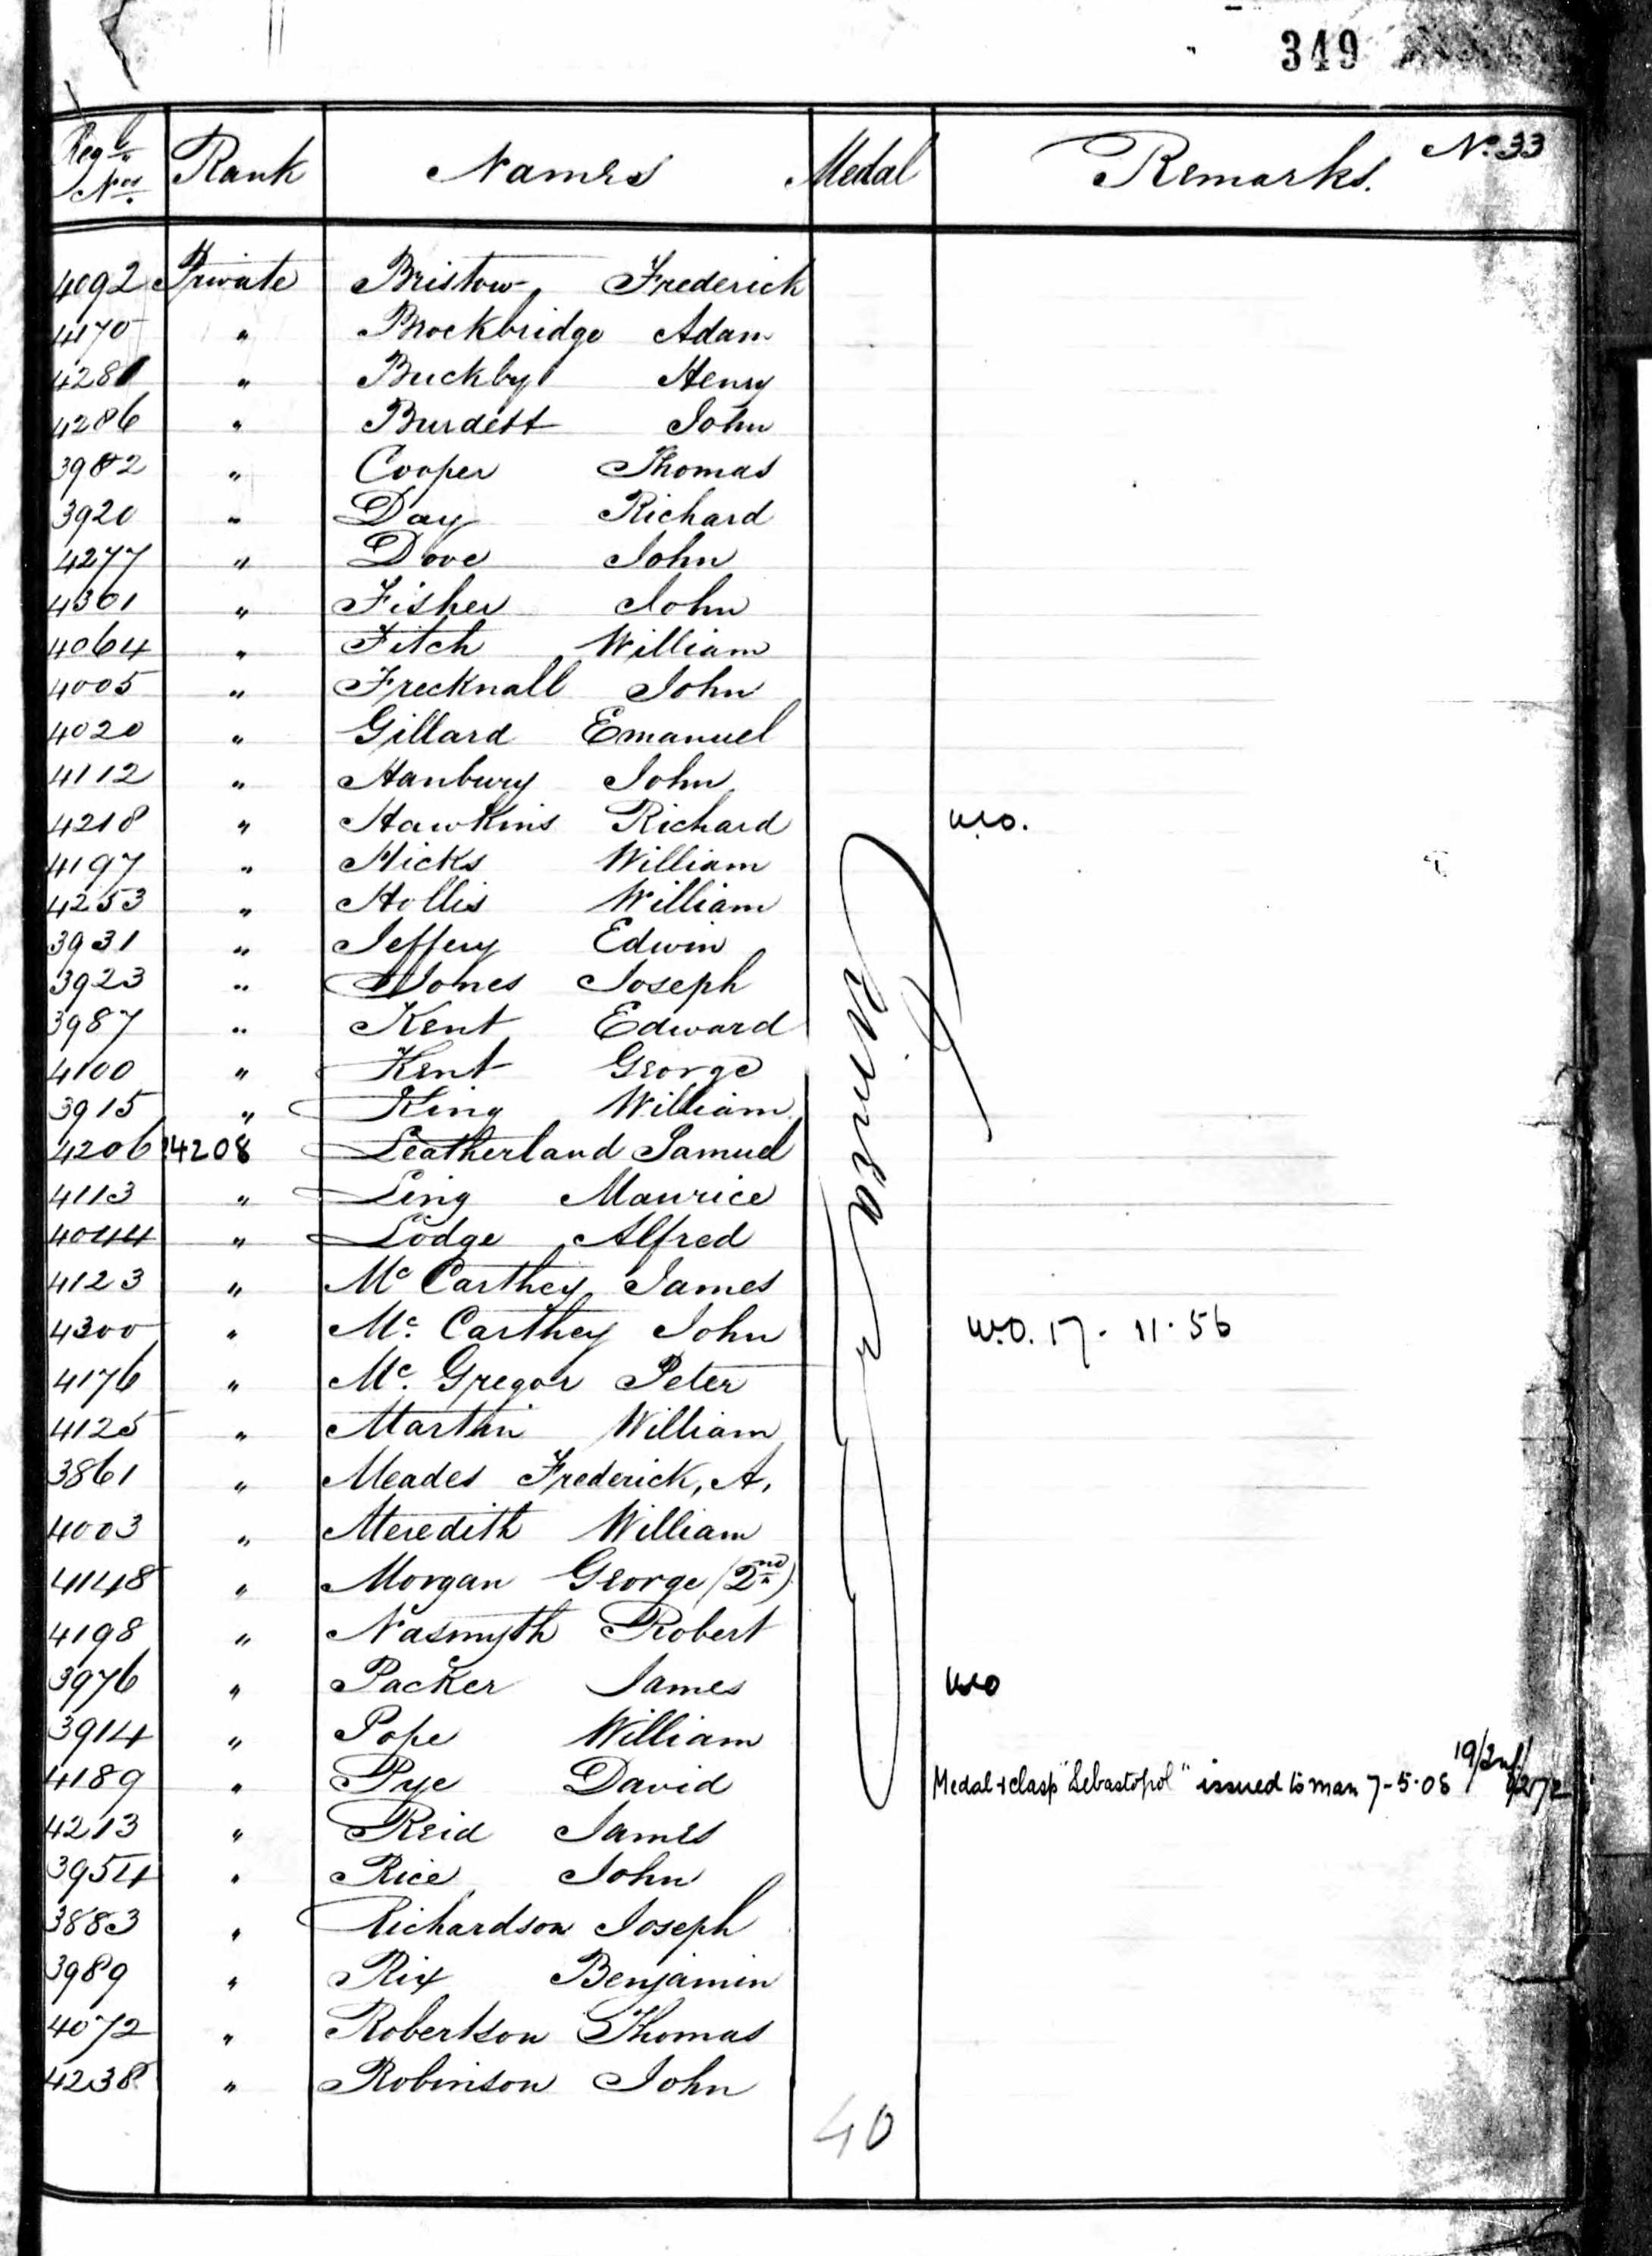 349
Regl Nos. Rank Names Medal Remarks. No. 33
4092 Private Bristow, Frederick
4170 " Brockbridge Adam
4281 " Buckby Henry
4286 " Burdett John
3982 " Cooper Thomas
3920 " Day Richard
4277 " Dove John
4301 " Fisher John
4064 " Fitch William
4005 " Frecknall John
4020 " Gillard Emanuel
4112 " Hanbury John
4218 " Hawkins Richard W.O.
4197 " Hicks William
4253 " Hollis William
3931 " Jeffery Edwin
3923 " Jones Joseph
3987 " Kent Edward
4100 " Kent George
3915 " King William
4206 4208 Leatherland Samuel
4113 " Ling Maurice
4044 " Lodge Alfred
4123 " Mc Carthey James
4300 " Mc. Carthey John W.O. 17 - 11 · 56
4176 " Mc. Gregor Peter
4125 " Martin William
3861 " Meades Frederick, A.
4003 " Meredith William
4148 " Morgan George (2nd)
4198 " Nasmyth Robert
3976 " Packer James WO
3914 " Pope William
4189 " Pye David Medal & clasp "Sebastopol" issued to man 7-5-08
4213 " Reid James
3954 " Rice John
3883 " Richardson Joseph
3989 " Rix Benjamin
4072 " Robertson Thomas
4238 " Robinson John
40